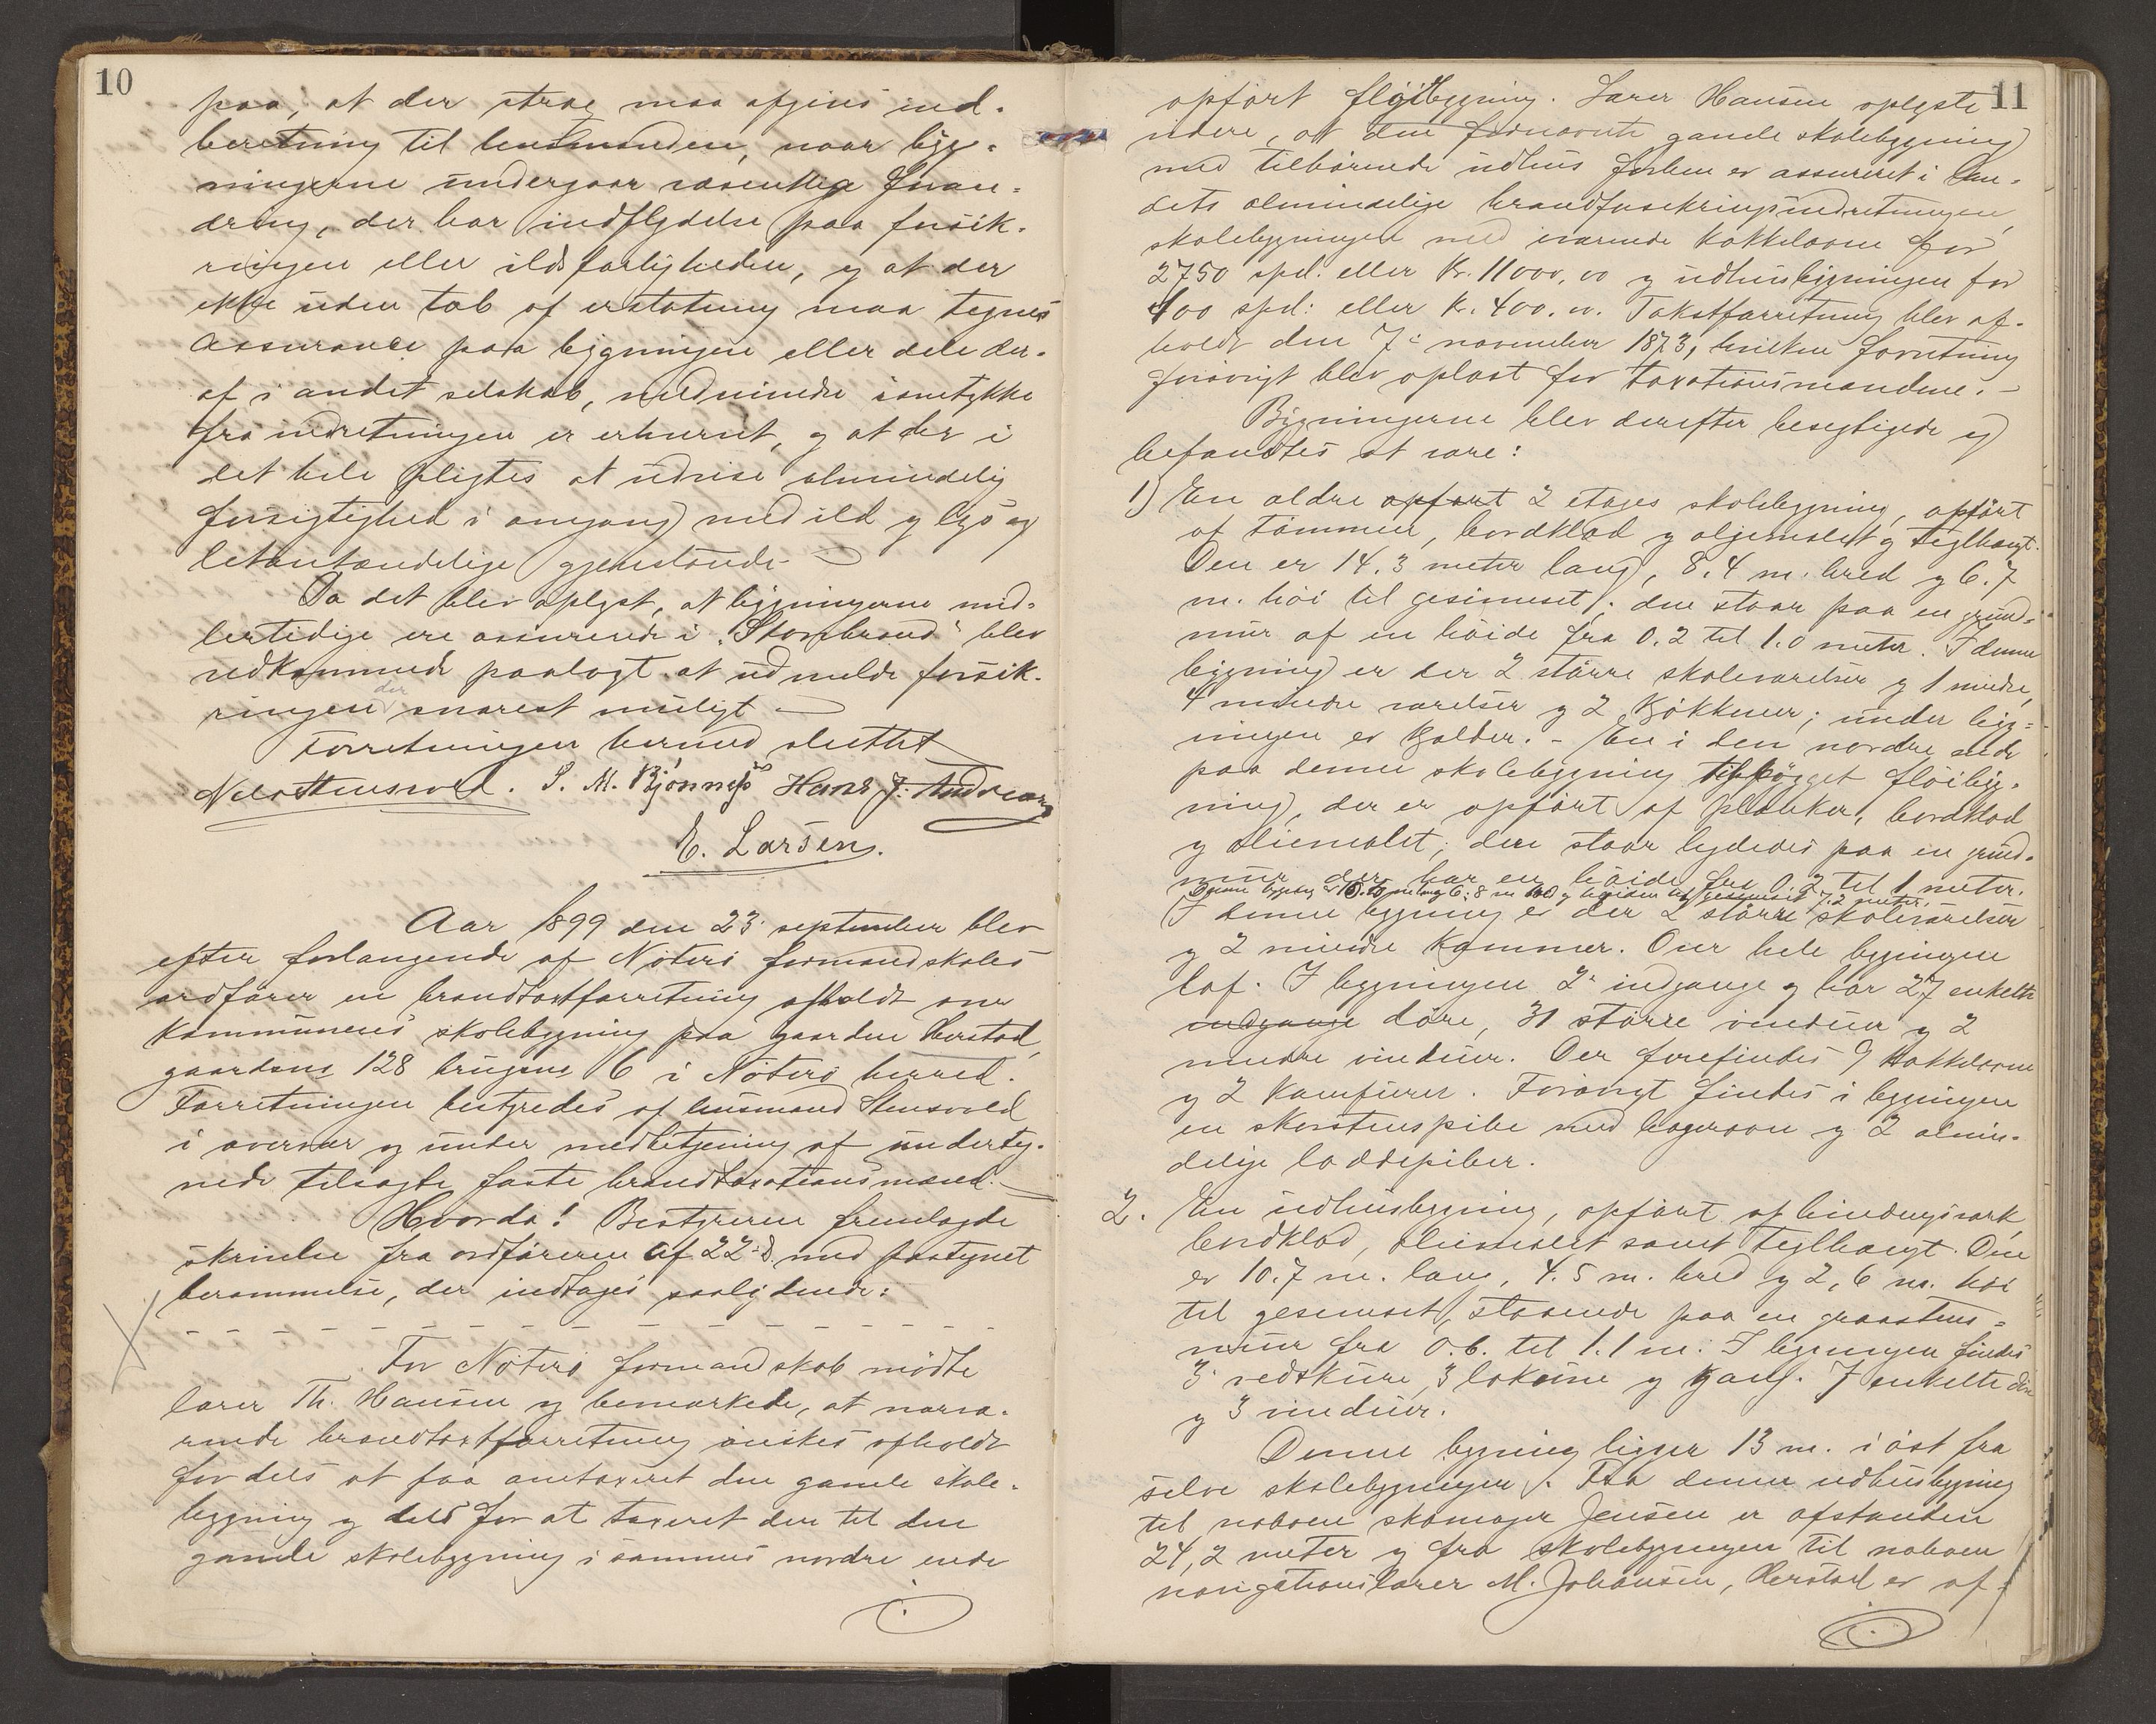 10
paa, at der strax maa afgives ind-
beretning til lensmanden, naar byg-
ningerne undergaar væsentlige foran-
dring, der har indflydelse paa forsik-
ringen eller ildsfarligheden, og at der
ikke uden tab af erstatning maa tegnes
assurance paa bygningen eller dele der-
af i andet selskab, medmindre samtykke
fra indretningen er erhvervet, og at der i
det hele pligtes at udvise almindelig
forsigtighed i omgang med ild og lys og
letantændelige gjenstande.
Da det blev oplyst, at bygningerne mid-
lertidige ere assurerede i "Storebrand" blev
vedkommende paalagt at udmelde forsik-
der
ringen snarest muligt
Forretningen hermed sluttet
Nils Stensvold. S. M. Bjönness Hans J. Andreasen
E. Larsen.
Aar 1899 den 23. september blev
efter forlangende af Nöterö formandskabs
ordförer en brandtaxtforretning afholdt over
kommunens skolebygning paa gaarden Herstad,
gaardens 128 brugens 6 i Nöterö herred.
Forretningen bestyredes af lensmand Stensvold
i overvær og under medbetjening af underteg-
nede tilsagte faste brandtaxationsmænd.
Hvorda! Bestyreren fremlagde
skrivelse fra ordföreren af 22 d. med paategnet
berammelse, der indtages saalydende:
For Nöterö formandskab mödte
lærer Th. Hansen og bemærkede, at nærvæ-
rende brandtaxtforretning önskes afholdt
for dels at faa omtaxeret den gamle skole-
bygning og dels for at taxeret den til den
gamle skolebygning i sammes nordre ende
11
opfört flöibygning. Lærer Hansen oplyste
videre, at den fornævnte gamle skolebygning
med tilhörende udhus forhen er assureret i lan-
dets almindelige brandforsikringsindretningen,
skolebygningen med iværende kakkelovne for
2750 spd. eller Kr. 11000,00 og udhusbygningen for
100 spd: eller Kr. 400.00. Takstforretning blev af-
holdt den 7de november 1873, hvilken forretning
forövrigt blev oplæst for taxationsmændene.
Bygningerne blev derefter besigtigede og
befandtes at være:
1) En ældre opfört 2 etages skolebygning, opfört
af tömmer, bordklæd og oljemalet og teglhængt.
Den er 14.3 meter lang, 8.4 m. bred og 6.7
m. höi til gesimset; den staar paa en grund-
mur af en höide fra 0.2 til 1.0 meter. I denne
bygning er der 2 större skoleværelser og 1 mindre,
4 mindre værelser og 2 kjökkener; under byg-
ningen er kjelder. - En i den nordre ende
paa denne skolebygning tilbygget flöibyg-
ning, der er opfört af planker, bordklæd
og oliemalet; den staar ligeledes paa en grund-
mur der har en höide fra 0.2 til 1 meter.
Denne bygning er 10.0 m lang 6.8 m bred og höiden til gesimset 7.2 meter.
I denne bygning er der 2 större skoleværelser
og 2 mindre kammer. Over hele bygningen
loft. I bygningen 2 indgange og har 27 enkelte
indgange döre, 31 större vinduer og 2
mindre vinduer. Der forefindes 9 kakkelovne
og 2 komfurer. Forövrigt findes i bygningen
en skorstenspibe med bagerovn og 2 almin-
delige loddepiber.
2. En udhusbygning, opfört af bindingsværk,
bordklæd, oliemalet samt teglhængt. Den
er 10.7 m. lang, 4.5 m. bred og 2,6 m. höi
til gesimset, staaende paa en graastens-
mur fra 0.6. til 1.1 m. I bygningen findes
3 vedskure, 3 lokume og gang. 7 enkelte döre
og 3 vinduer.
Denne bygning ligger 13 m. i öst fra
selve skolebygningen. Fra denne udhusbygning
til naboen skomager Jensen er afstanden
24,2 meter og fra skolebygningen til naboen
navigationslærer M. Johansen, Herstad er af-